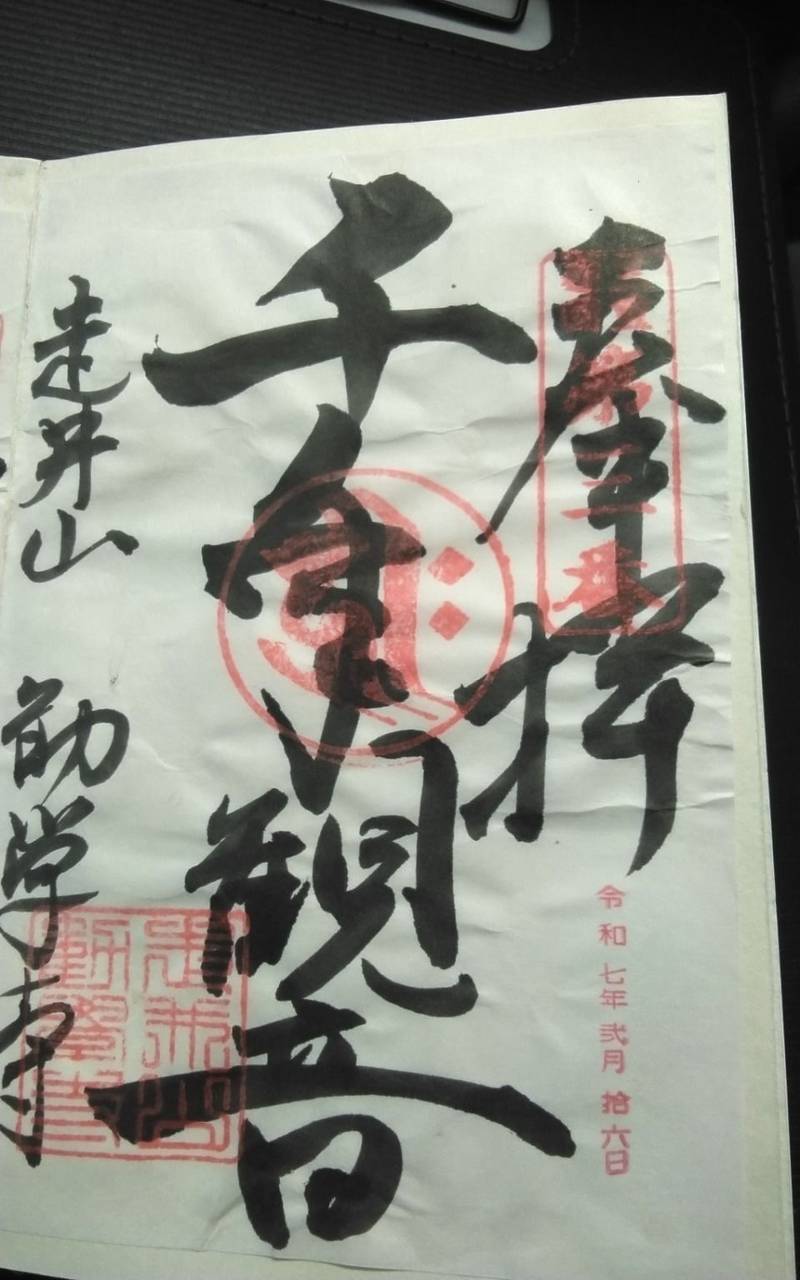 奉拝
令和七年弐月拾六日
千手観音
走井山 勧学寺
走井山
勸學寺